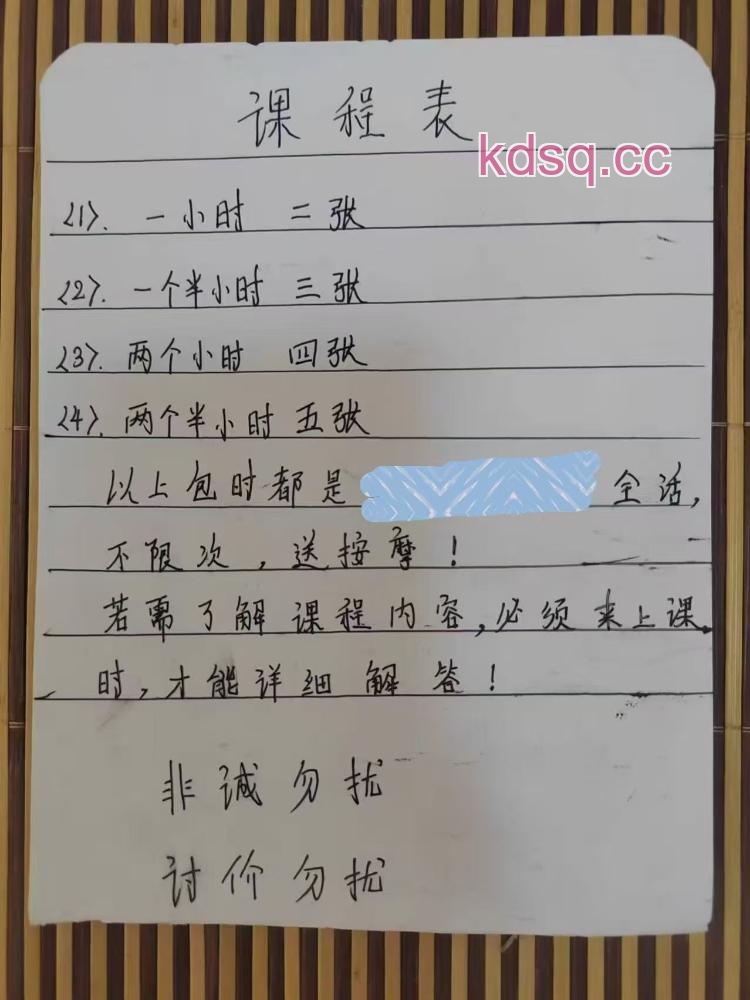 课程表
kdsq.cc
<1>. 一小时 二张
<2>. 一个半小时 三张
<3>. 两个小时 四张
<4>. 两个半小时 五张
以上包时都是 全活,
不限次,送按摩!
若需了解课程内容,必须来上课
时,才能详细解答!
非诚勿扰
讨价勿扰